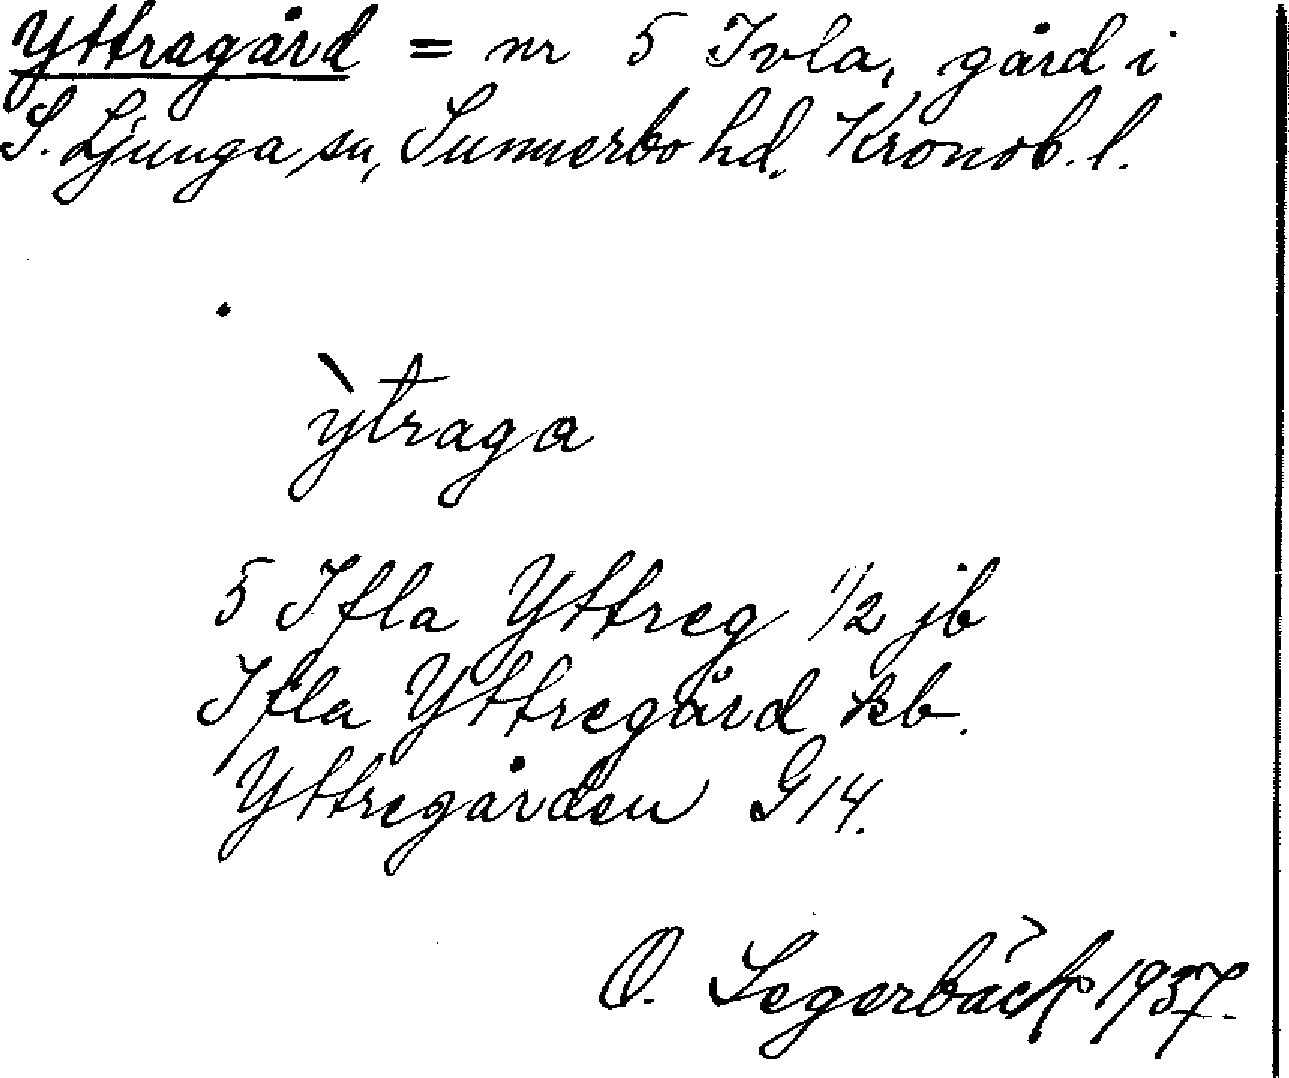 Yttragård = nr 5 Ivla, gård i
S. Ljunga sn, Sunnerbo hd. Kronob. l.
ỳtraga
5 Ifla Yttreg 1/2 jb
Ifla Yttregård kb.
Yttregården G14.
O. Segerbäck 1937.